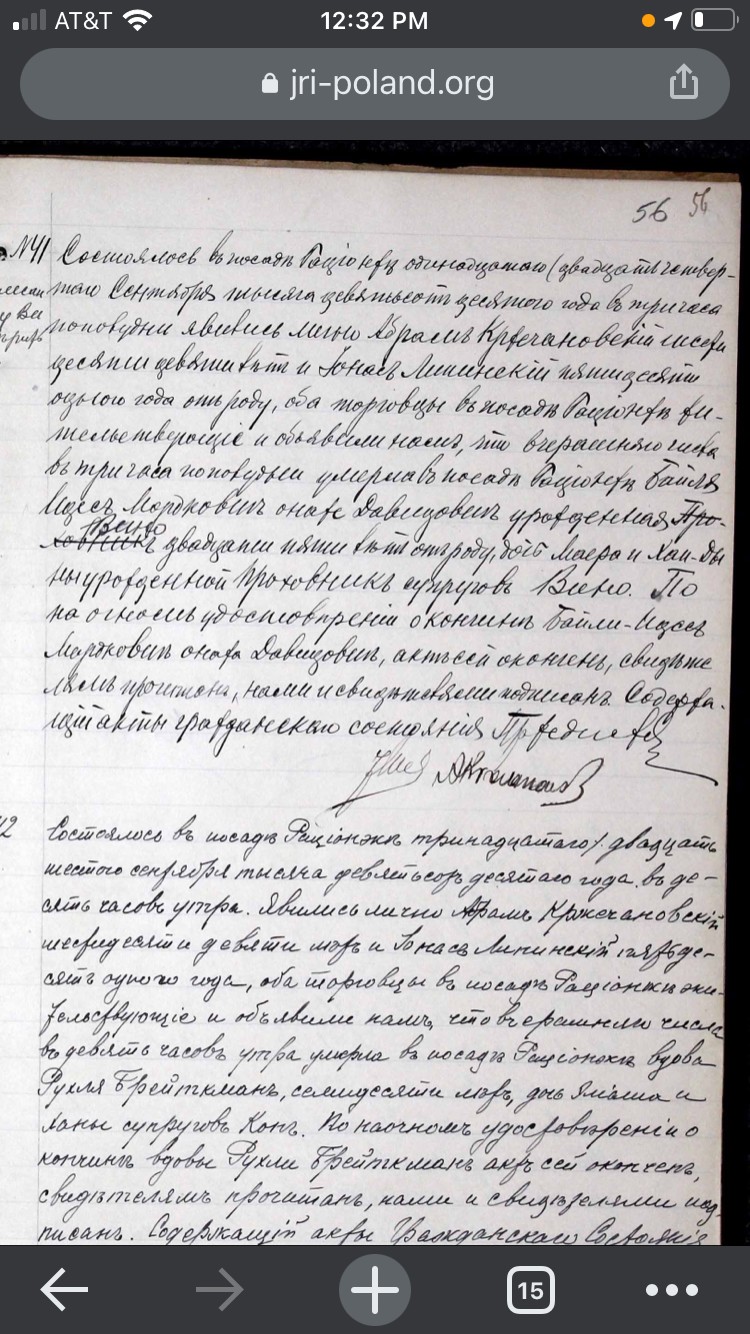 AT&T
12:32 PM
jri-poland.org
56 56
№41
Состоялось въ посадѣ Раціонжѣ одинадцатаго (двадцать четвер-
таго Сентября тысяча девятьсотъ десятаго года въ три часа
пополудни явились лично Абрамъ Кржечановскій шесть
десяти девяти лѣтъ и Іонасъ Липинскій пятидесяти
одного года отъ роду, оба торговцы въ посадѣ Раціонжѣ жи-
тельствующіе и объявили намъ, что вчерашняго числа
въ три часа пополудни умерла въ посадѣ Раціонжѣ Байля
Идесъ Мордковичъ онаже Давидовичъ урожденная Про-
ховникъ Вино двадцати пяти лѣтъ отъ роду, дочь Маера и Хаи-Ды
ны урожденной Проховникъ супруговъ Вино. По
удостовѣреніи о кончинѣ Байли-Идесъ
Мордковичъ онаже Давидовичъ, актъ сей оконченъ, свидѣте
лямъ прочитанъ, нами и свидѣтелями подписанъ. Содержа-
щій акты гражданскаго состоянія
42
Состоялось въ посадѣ Раціонжѣ тринадцатаго / двадцать
шестого сентября тысяча девятьсотъ десятаго года въ де-
сять часовъ утра. Явились лично Абрамъ Кржечановскій
шестидесяти девяти лѣтъ и Іонасъ Липинскій пятьде-
сять одного года, оба торговцы въ посадѣ Раціонжѣ жи-
тельствующіе и объявили намъ, что вчерашняго числа
въ девять часовъ утра умерла въ посадѣ Раціонжѣ вдова
Рухля Брейткманъ, семидесяти лѣтъ, дочь и
Ханы супруговъ Конъ. По наочномъ удостовѣреніи о
кончинѣ вдовы Рухли Брейткманъ актъ сей оконченъ,
свидѣтелямъ прочитанъ, нами и свидѣтелями под-
писанъ. Содержащій акты Гражданскаго Состоянія
15